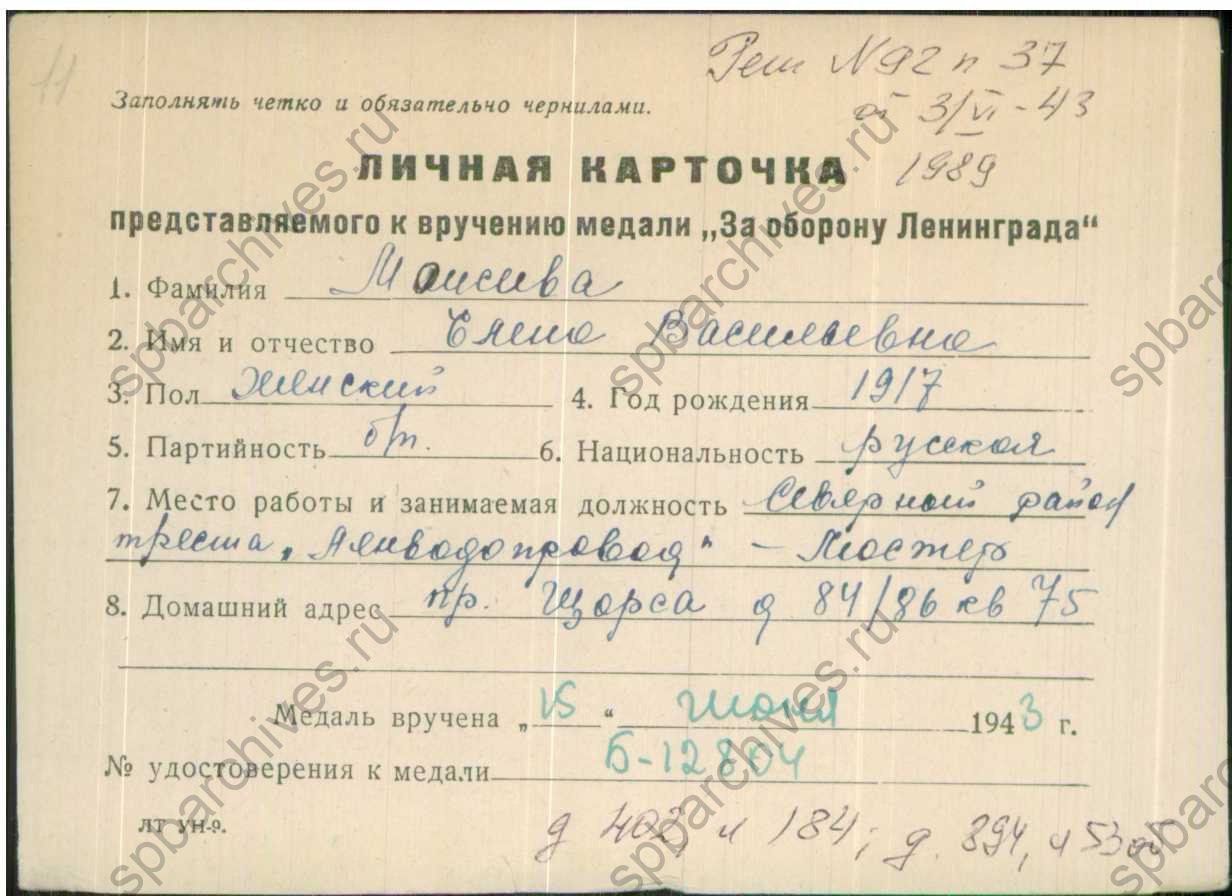 11
Реш N 92 п 37
от 3/VI-43
1989
Заполнять четко и обязательно чернилами.
ЛИЧНАЯ КАРТОЧКА
представляемого к вручению медали „За оборону Ленинграда“
1. Фамилия Моисива
2. Имя и отчество Елена Васильевна
3. Пол Женский 4. Год рождения 1917
5. Партийность б/п. 6. Национальность русская
7. Место работы и занимаемая должность Северный район
треста „Ленводопровод" –
8. Домашний адрес пр. Щорса д 84/86 кв 75
Медаль вручена „15“ июня 1943 г.
№ удостоверения к медали Б-12804
ЛТ УН-9.
д 402, л 184; д. 894, л 53об
spbarchives.ru